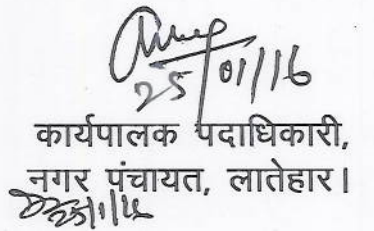 25/01/16
कार्यपालक पदाधिकारी,
नगर पंचायत, लातेहार।
25/1/16